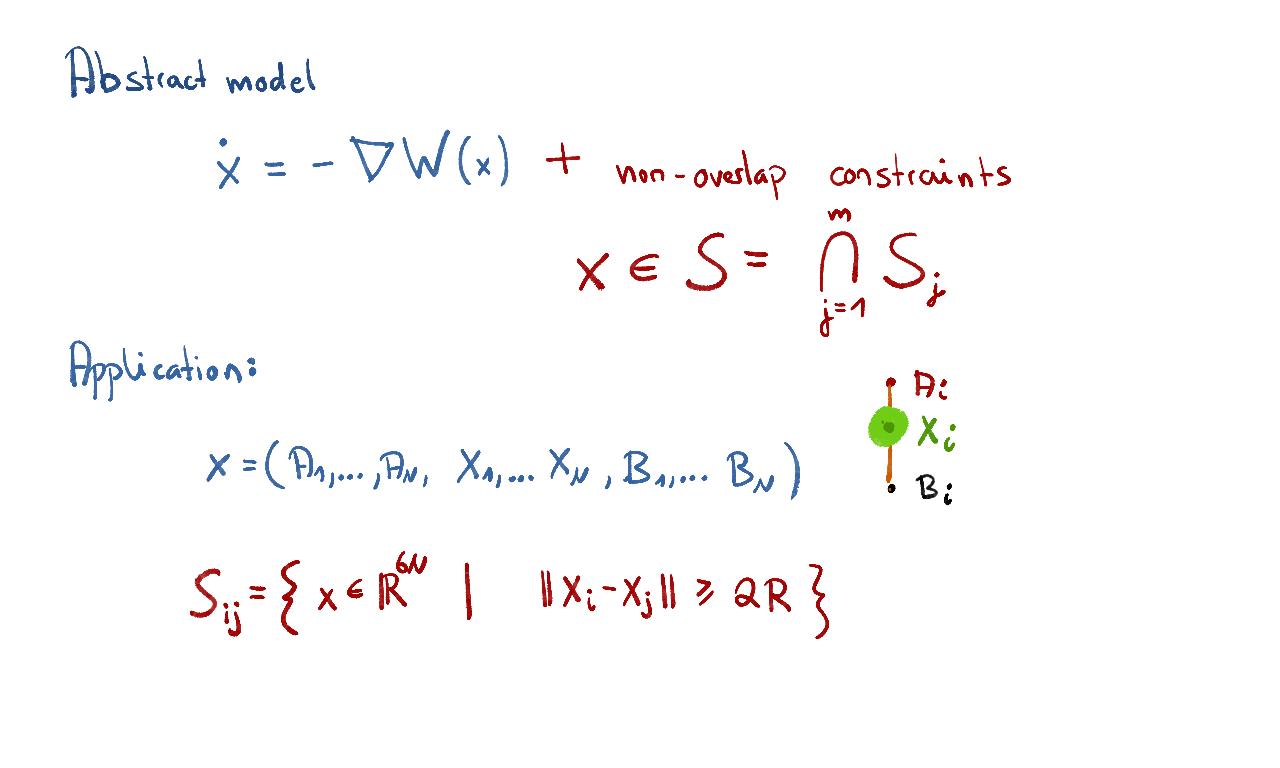 Abstract model
ẋ = - ∇W(x) + non-overlap constraints
x ∈ S = ⋂_{j=1}^{m} S_j
Application:
A_i
X_i
x = (A_1,...,A_N, X_1,... X_N, B_1,... B_N)
B_i
S_ij = { x ∈ ℝ^{6N} | ‖X_i - X_j‖ ⩾ 2R }